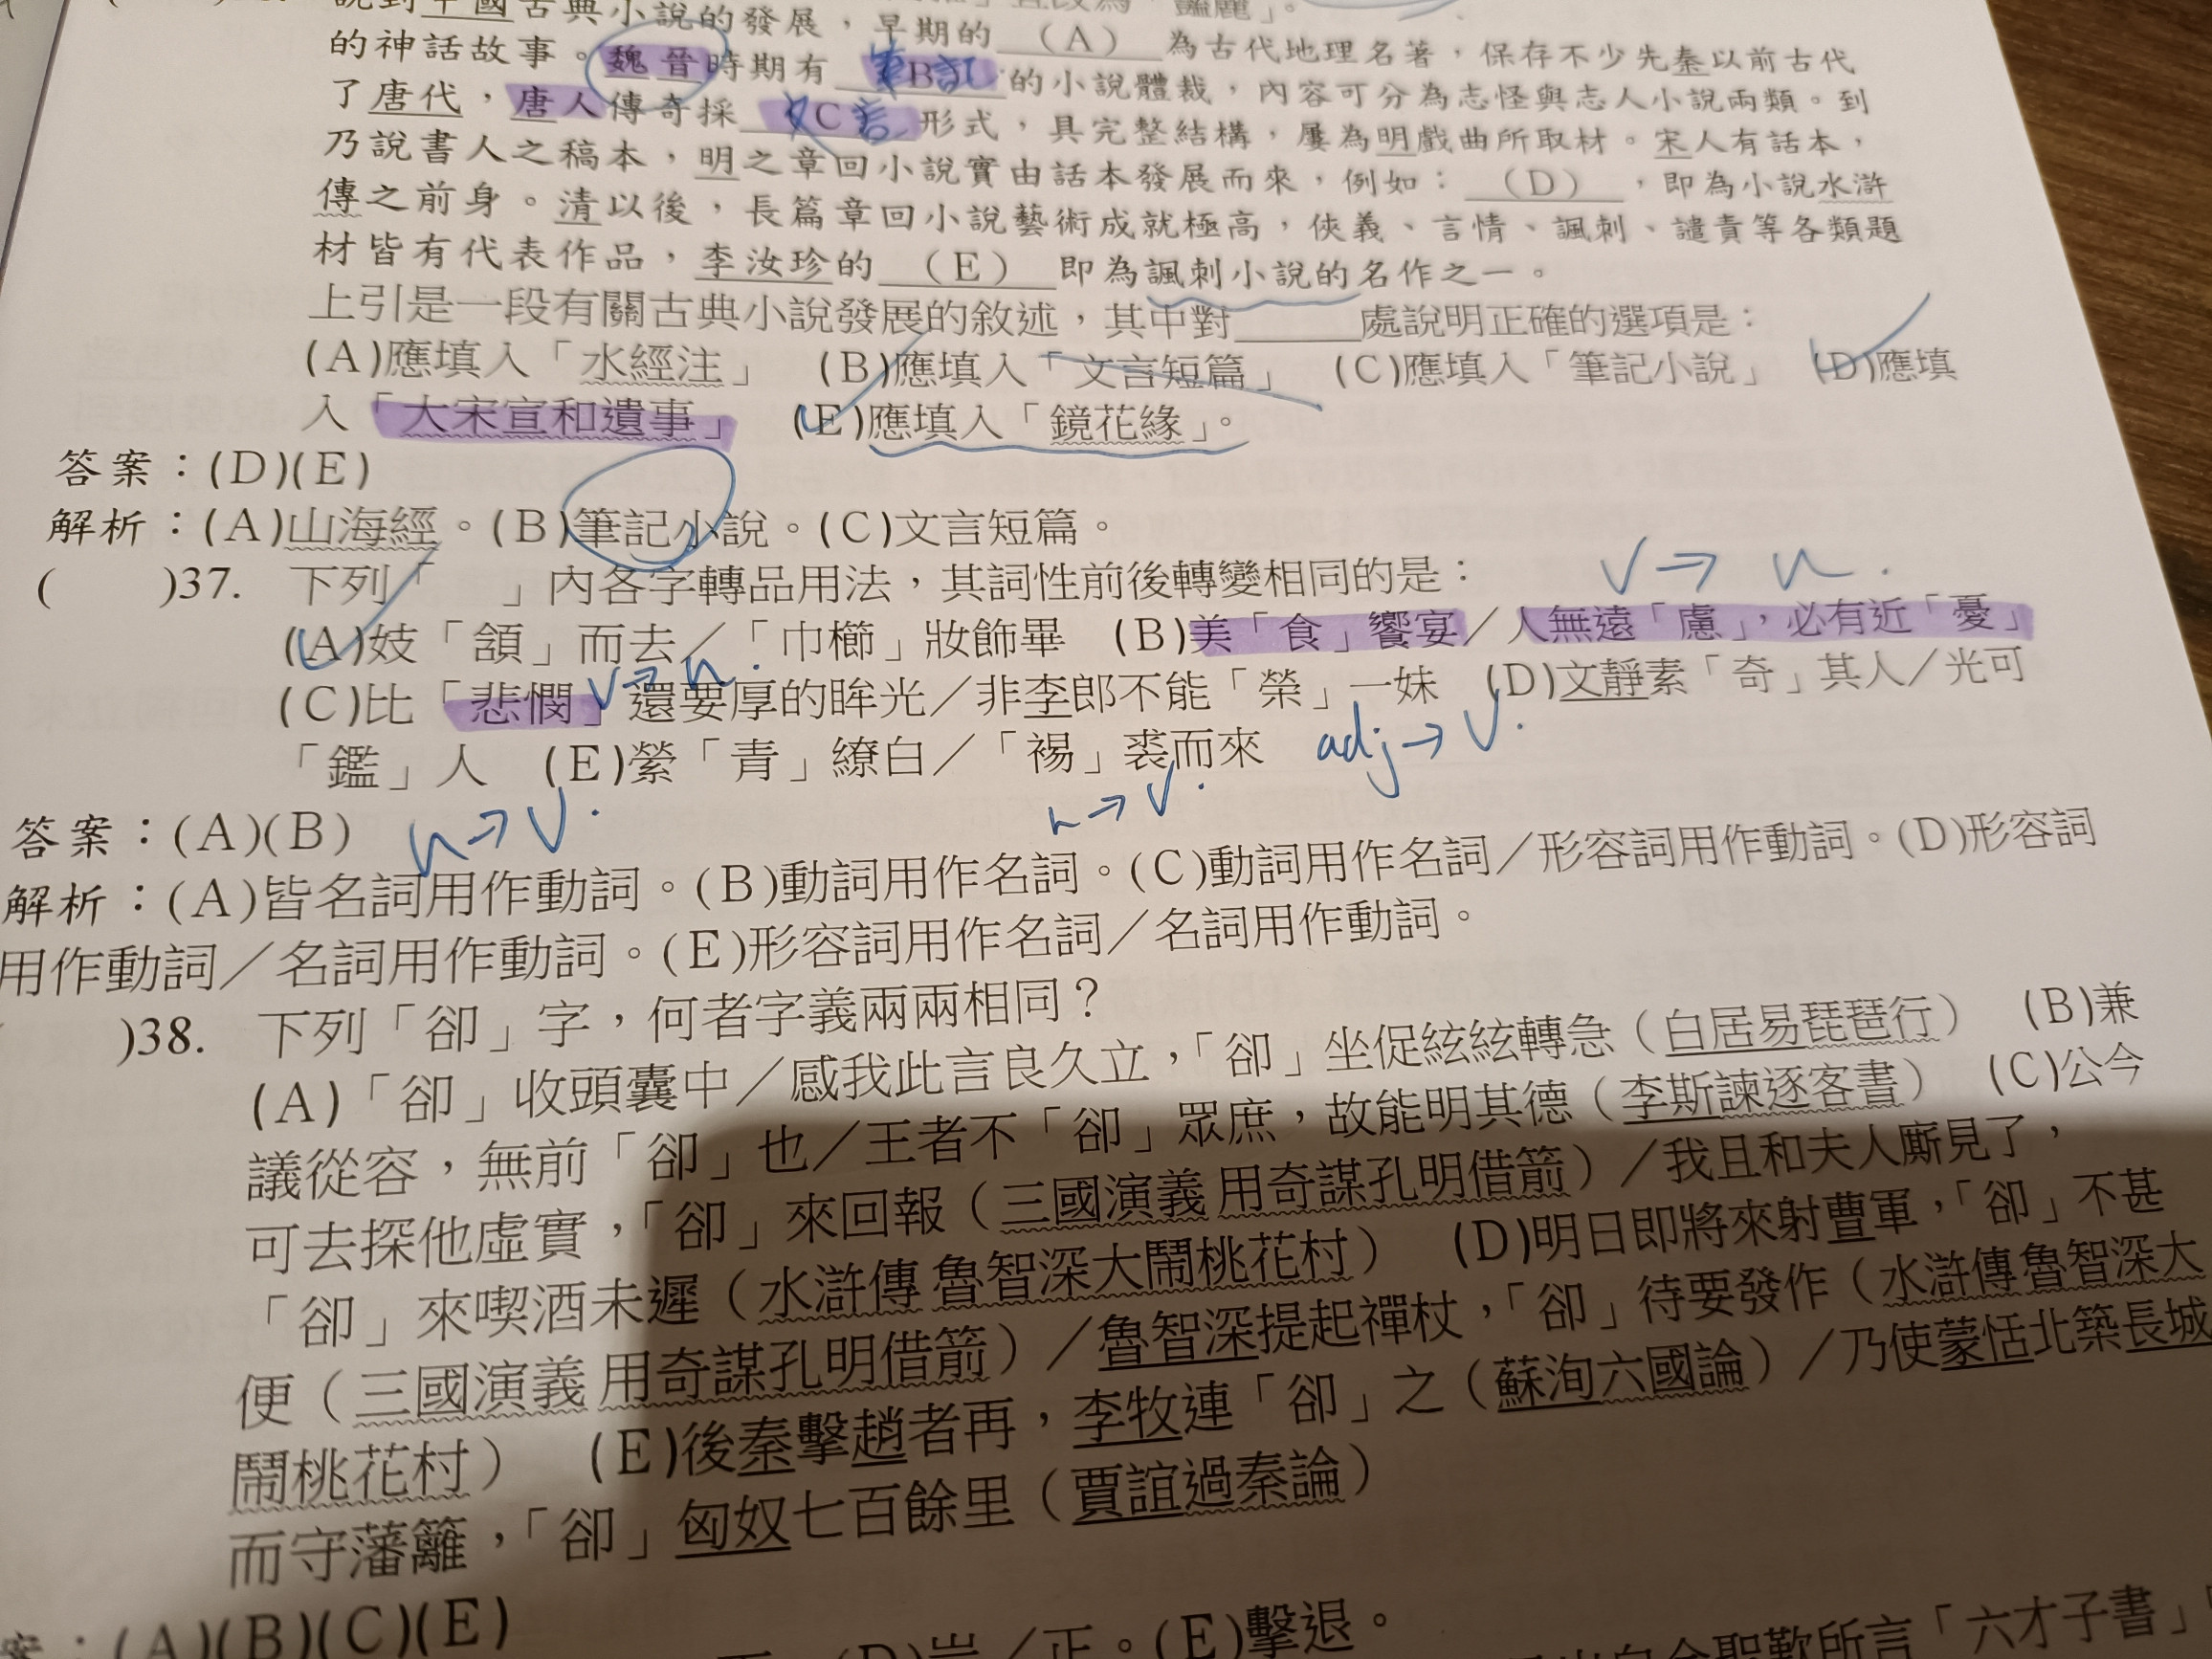 說到中國古典小說的發展，早期的 (A) 為古代地理名著，保存不少先秦以前古代
的神話故事。魏晉時期有 筆B記 的小說體裁，內容可分為志怪與志人小說兩類。到
了唐代，唐人傳奇採 文C言 形式，具完整結構，屢為明戲曲所取材。宋人有話本，
乃說書人之稿本，明之章回小說實由話本發展而來，例如： (D) ，即為小說水滸
傳之前身。清以後，長篇章回小說藝術成就極高，俠義、言情、諷刺、譴責等各類題
材皆有代表作品，李汝珍的 (E) 即為諷刺小說的名作之一。
上引是一段有關古典小說發展的敘述，其中對______處說明正確的選項是：
(A)應填入「水經注」 (B)應填入「文言短篇」 (C)應填入「筆記小說」 (D)應填
入「大宋宣和遺事」 (E)應填入「鏡花緣」。
答案：(D)(E)
解析：(A)山海經。(B)筆記小說。(C)文言短篇。
( )37. 下列「 」內各字轉品用法，其詞性前後轉變相同的是：
v→n.
(A)妓「頷」而去／「巾櫛」妝飾畢 (B)美「食」饗宴／人無遠「慮」，必有近「憂」
v→n.
(C)比「悲憫」還要厚的眸光／非李郎不能「榮」一妹 (D)文靜素「奇」其人／光可
adj→v.
「鑑」人 (E)縈「青」繚白／「裼」裘而來
n→v.
n→v.
答案：(A)(B)
解析：(A)皆名詞用作動詞。(B)動詞用作名詞。(C)動詞用作名詞／形容詞用作動詞。(D)形容詞
用作動詞／名詞用作動詞。(E)形容詞用作名詞／名詞用作動詞。
)38. 下列「卻」字，何者字義兩兩相同？
(A)「卻」收頭囊中／感我此言良久立，「卻」坐促絃絃轉急（白居易琵琶行） (B)兼
議從容，無前「卻」也／王者不「卻」眾庶，故能明其德（李斯諫逐客書） (C)公今
可去探他虛實，「卻」來回報（三國演義 用奇謀孔明借箭）／我且和夫人廝見了，
「卻」來喫酒未遲（水滸傳 魯智深大鬧桃花村） (D)明日即將來射曹軍，「卻」不甚
便（三國演義 用奇謀孔明借箭）／魯智深提起禪杖，「卻」待要發作（水滸傳 魯智深大
鬧桃花村） (E)後秦擊趙者再，李牧連「卻」之（蘇洵六國論）／乃使蒙恬北築長城
而守藩籬，「卻」匈奴七百餘里（賈誼過秦論）
案：(A)(B)(C)(E)
(D)豈／正。(E)擊退。
自金聖歎所言「六才子書」